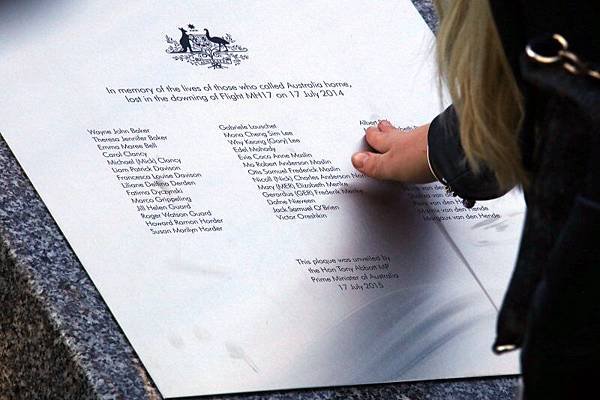 In memory of the lives of those who called Australia home,
lost in the downing of Flight MH17 on 17 July 2014
Wayne John Baker
Theresa Jennifer Baker
Emma Maree Bell
Carol Clancy
Michael (Mick) Clancy
Liam Patrick Davison
Francesca Louise Davison
Liliane Derden
Fatima Dyczynski
Marco Grippeling
Jill Helen Guard
Roger Watson Guard
Howard Ramon Horder
Susan Marilyn Horder
Gabriele Lauschet
Mona Cheng Sim Lee
Edel Mahady
Evie Coco Anne Maslin
Mo Robert Anderson Maslin
Otis Samuel Frederick Maslin
Nicoll (Nick) Charles Anderson
Mary (MER) Elizabeth Menke
Gerardus (GER) Frederik Menke
Dafne Nieveen
Jack Samuel O'Brien
Victor Oreshkin
van den Hende
This plaque was unveiled by
the Hon Tony Abbott MP
Prime Minister of Australia
17 July 2015